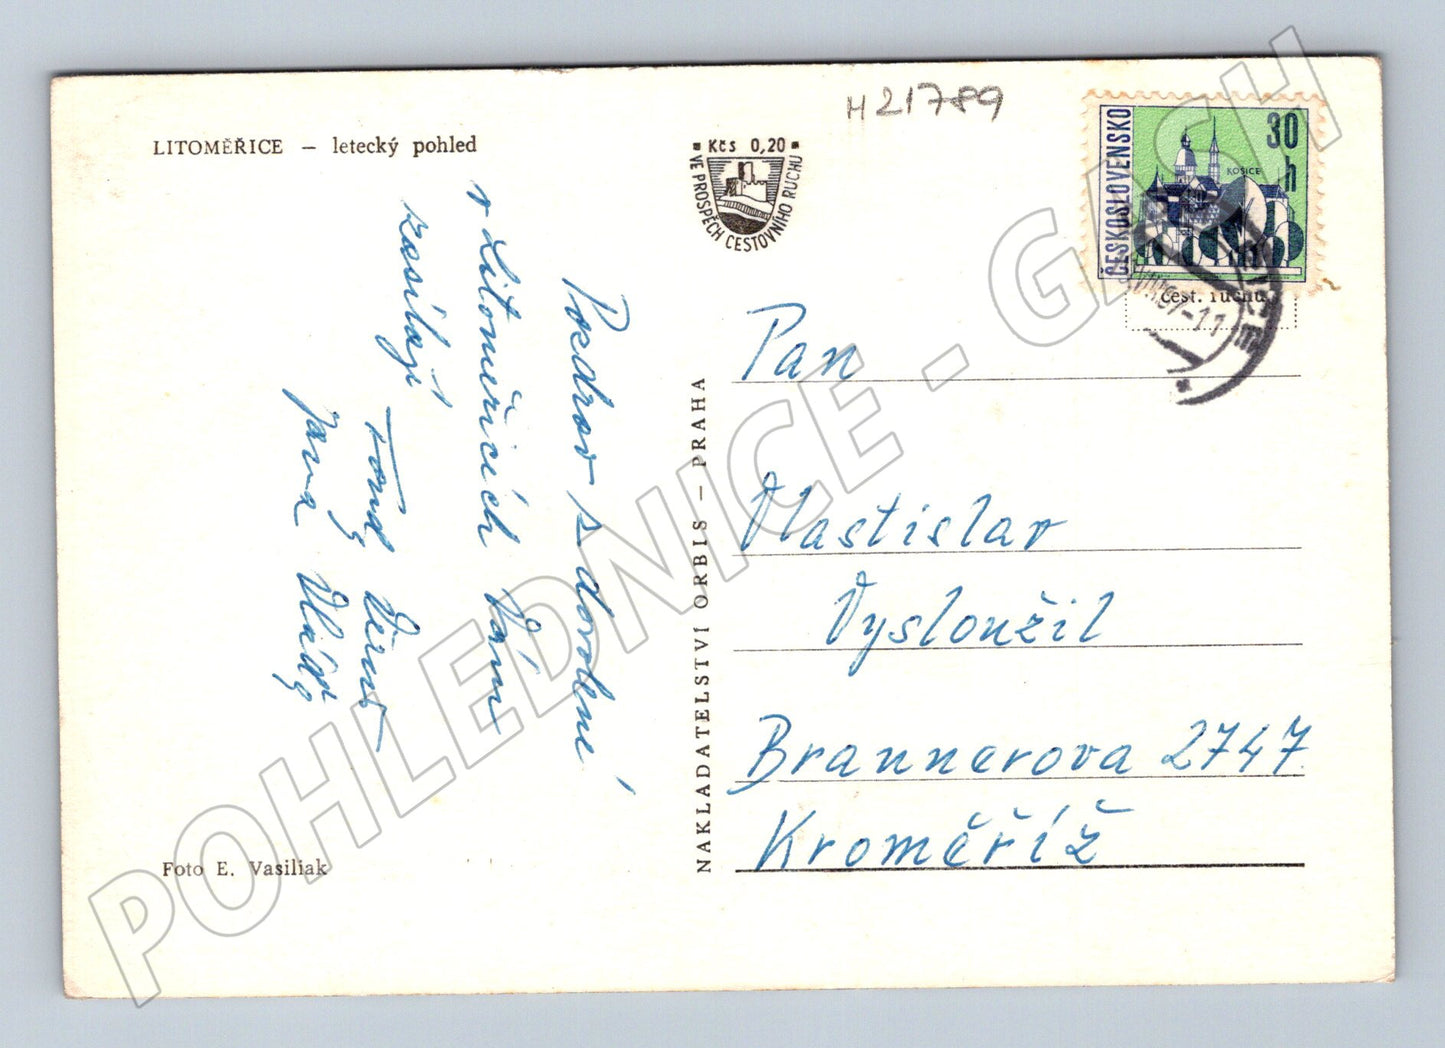 H21789
LITOMĚŘICE – letecký pohled
Kčs 0,20
VE PROSPĚCH CESTOVNÍHO RUCHU
ČESKOSLOVENSKO
30
h
KOŠICE
čest. ruchu
Pozdrav s dovolené
v Litoměřicích Vám
zasílají
Jana
Pan
Vlastislav
Vysloužil
Brannerova 2747
Kroměříž
NAKLADATELSTVÍ ORBIS – PRAHA
Foto E. Vasiliak
POHLEDNICE - GASH